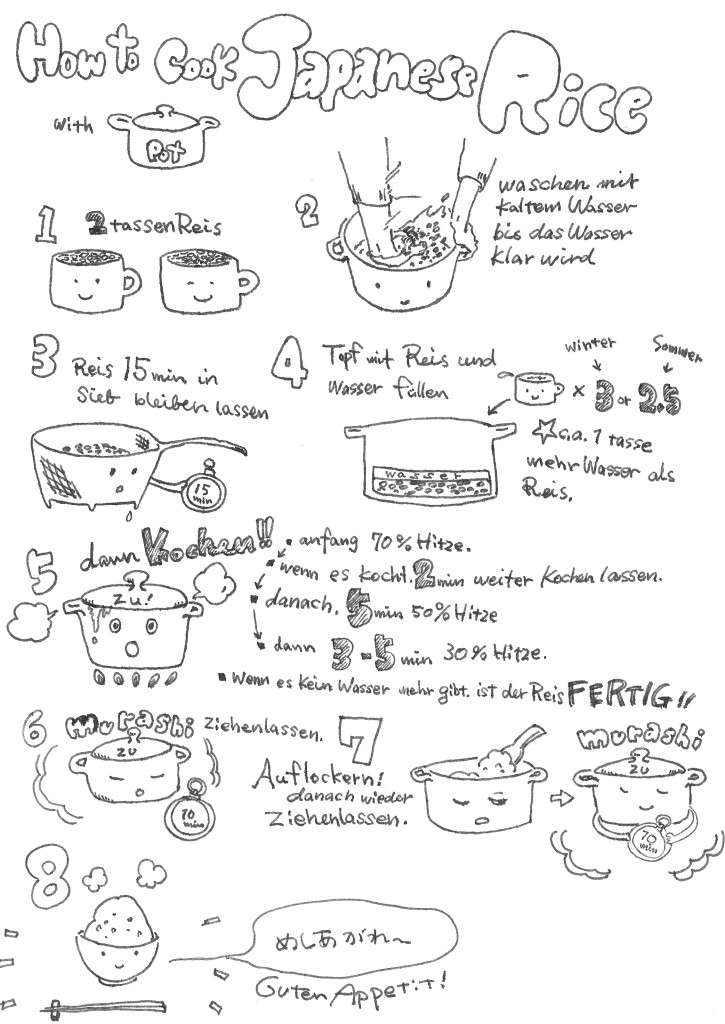 How to Cook Japanese Rice
with
Pot
1 2 tassen Reis
2
waschen mit
kaltem Wasser
bis das Wasser
klar wird
3 Reis 15 min in
Sieb bleiben lassen
15
min
4 Topf mit Reis und
Wasser füllen
winter
Sommer
× 3 or 2.5
☆ c.a. 1 tasse
mehr Wasser als
Reis.
wasser
5 dann Kochen!!
zu!
• anfang 70% Hitze.
• wenn es kocht. 2 min weiter kochen lassen.
• danach. 5 min 50% Hitze
• dann 3-5 min 30% Hitze.
• wenn es kein Wasser mehr gibt. ist der Reis FERTIG!!
6 murashi ziehenlassen.
zu
10
min
7
Auflockern!
danach wieder
ziehenlassen.
murashi
zu
10
min
8
めしあがれ〜
Guten Appetit!